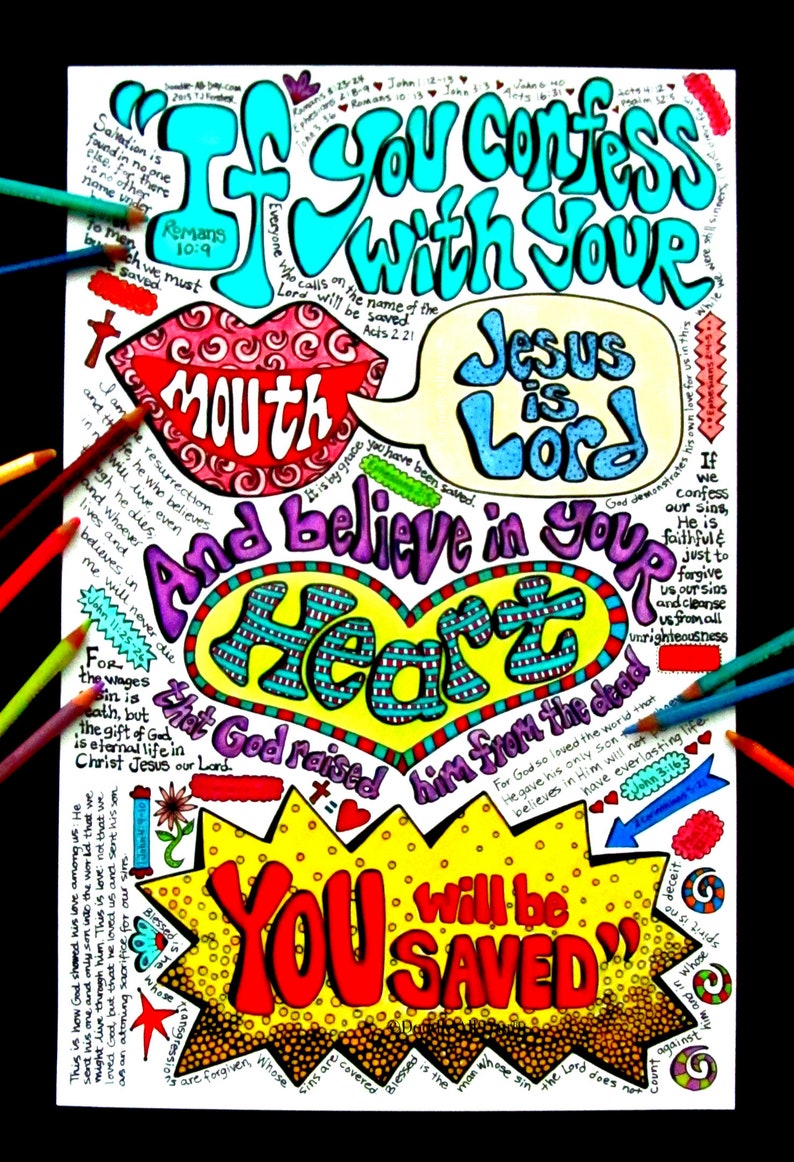 Doodle-All-Day.com
2013 TJ
Romans 3:23-24 John 1:12-13
Ephesians 2:8-9 Romans 10:13 John 3:3 John 6:40
John 3:36 Acts 16:31 Acts 4:12
Psalm 32:5
"If you confess
with your
Romans
10:9
Salvation is
found in no one
else, for there
is no other
name under
to men
we must
be saved.
Everyone who calls on the name of the
Lord will be saved.
Acts 2 21
Mouth
Jesus
is
Lord
While we were still sinners,
God demonstrates his own love for us in this
Ephesians 2:4-5
I am the resurrection
and the life, he who believes
in me will live, even
though he dies;
and whoever
lives and
believes in
me will never die
John 11:25-26
It is by grace you have been saved.
If
we
confess
our sins,
He is
faithful &
just to
forgive
us our sins
and cleanse
us from all
unrighteousness
And believe in your
Heart
that God raised him from the dead
For
the wages
sin is
death, but
the gift of God
is eternal life in
Christ Jesus our Lord.
For God so loved the world that
He gave his only son
believes in Him will not
have everlasting life
John 3:16
2 Corinthians 5:21
† = 
1 John 4:9-10
This is how God showed his love among us: He
sent his one and only son into the world that we
might live through him. This is love: not that we
loved God, but that he loved us and sent his son
as an atoning sacrifice for our sins
YOU will be
SAVED"
Blessed is he whose transgressions are forgiven, whose sins are covered Blessed is the man whose sin the Lord does not count against him and in whose spirit is no deceit